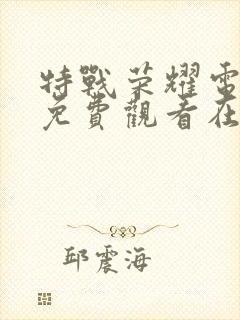 特戰荣耀電
免費觀看在
邱震海